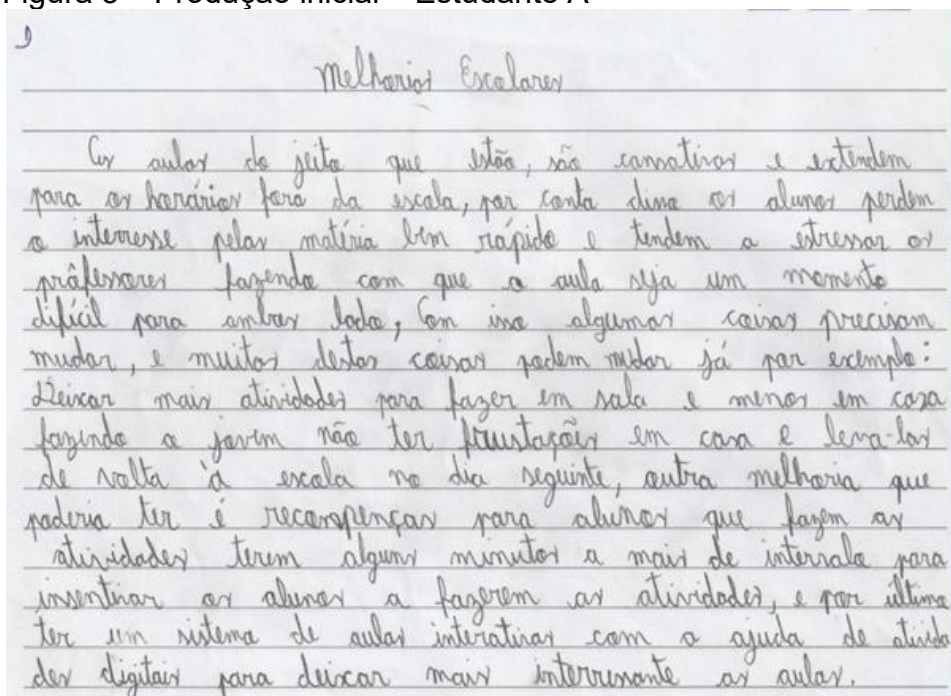 Figura 3 – Produção inicial – Estudante A
Melhorias Escolares
As aulas do jeito que estão, são cansativas e extendem
para os horários fora da escola, por conta disso os alunos perdem
o interresse pelas matéria bem rápido e tendem a estressar os
prâfessores fazendo com que a aula seja um momento
difícil para ambos lado, Com isso algumas coisas precisam
mudar, e muitas destas coisas podem mudar já por exemplo:
Deixar mais atividades para fazer em sala e menos em casa
fazendo o jovem não ter frustações em casa e leva-las
de volta à escola no dia seguinte, outra melhoria que
poderia ter é recompenças para alunos que fazem as
atividades terem alguns minutos a mais de intervalo para
insentivar os alunos a fazerem as atividades, e por último
ter um sistema de aulas interativas com a ajuda de ativida
des digitais para deixar mais interresante as aulas.